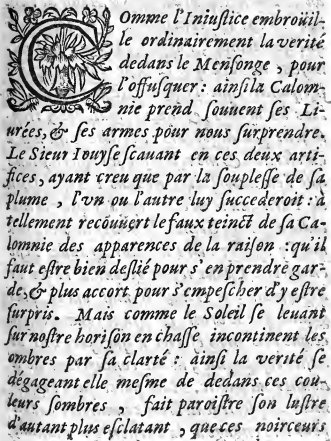 Comme l'Iniuſtice embroüil-
le ordinairement la verité
dedans le Menſonge, pour
l'offuſquer: ainſi la Calom-
nie prend ſouuent ſes Li-
urées, & ſes armes pour nous ſurprendre.
Le Sieur Iouyſe ſcauant en ces deux arti-
fices, ayant creu que par la ſoupleſſe de ſa
plume, l'vn ou l'autre luy ſuccederoit: à
tellement recouuert le faux teinct de ſa Ca-
lomnie des apparences de la raiſon: qu'il
faut eſtre bien deſlié pour s'en prendre gar-
de, & plus accort pour s'empeſcher d'y eſtre
ſurpris. Mais comme le Soleil ſe leuant
ſur noſtre horiſon en chaſſe incontinent les
ombres par ſa clarté: ainſi la verité ſe
dégageant elle meſme de dedans ces cou-
leurs ſombres, fait paroiſtre ſon luſtre
d'autant plus eſclatant, que ces noirceurs